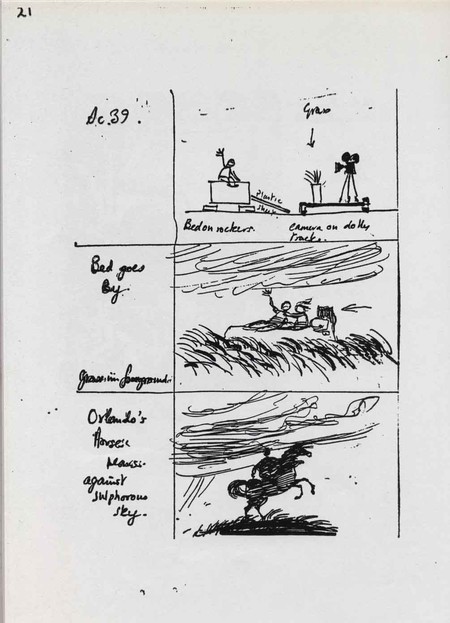 21
Sc.39.
Grass
Plastic
sheet.
Bed on rockers.
camera on dolly
tracks.
Bed goes
By.
Grass in foreground.
Orlando's
Horse
against
sulphorous
sky.